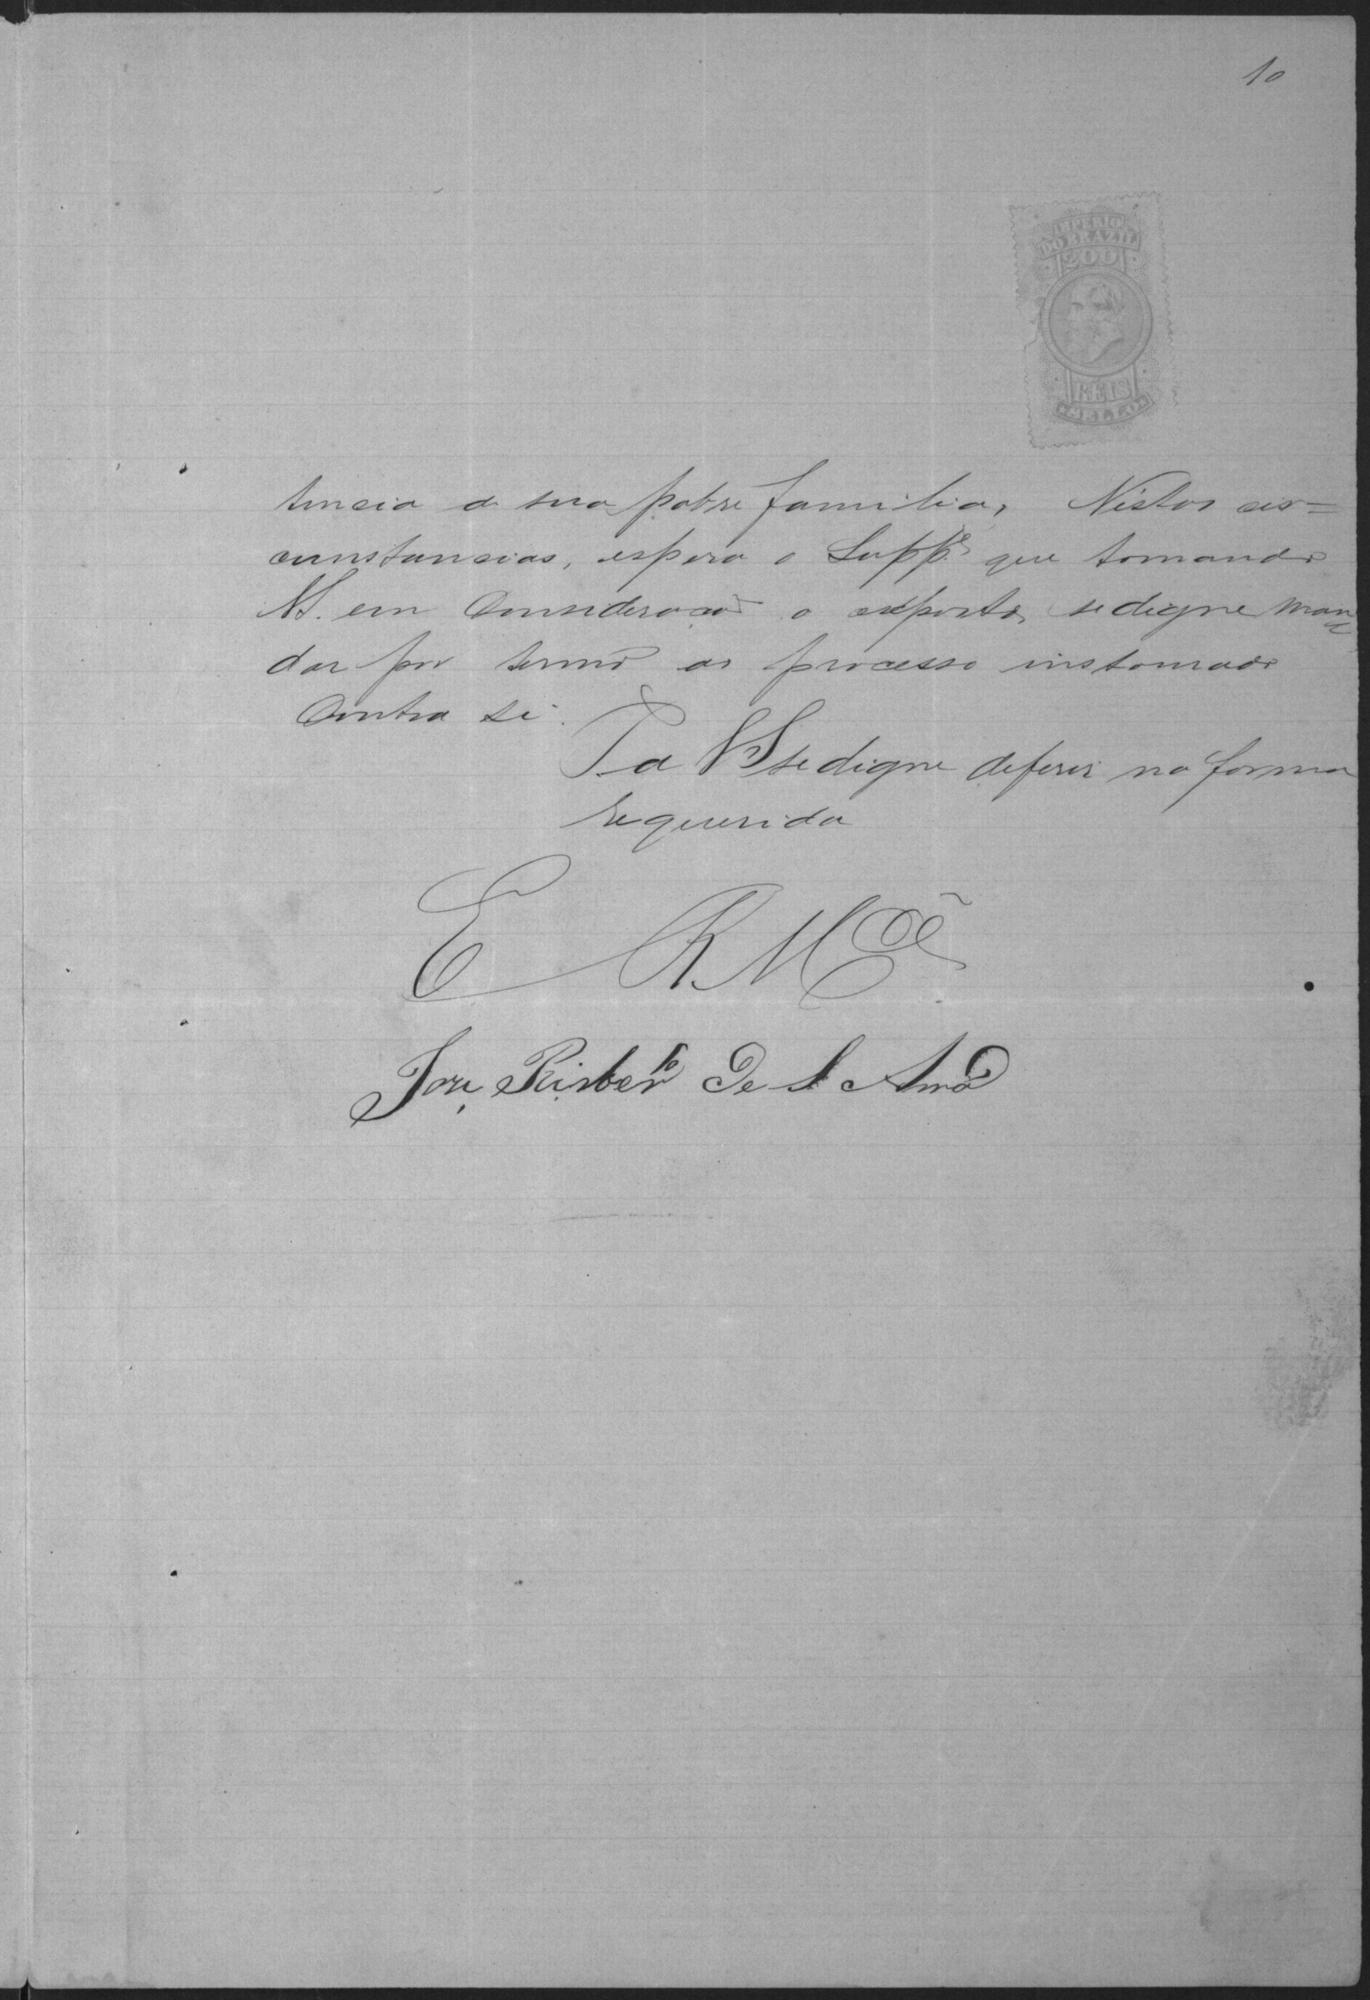 10
IMPERIO
DO BRAZIL
200
REIS
SELLO
tencia a sua pobre familia, Nestas cir=
cunstancias, espera o Suppe que tomando
VS. em Consideração o exposto, se digne man
dar por termo ao processo instourado
Contra si.
P a VS se digne deferir na forma
requerida
E R Mcê
José Ribeiro De S Amo